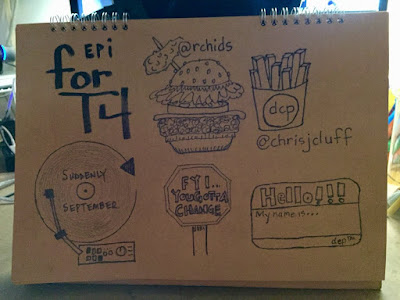 EPi
for
T4
@rchids
dcp
@chrisjcluff
SUDDENLY
SEPTEMBER
FYI...
YOU GOTTA
CHANGE
Hello!!!
My name is...
dcp™